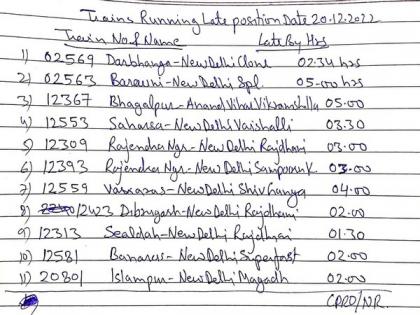 Trains Running Late position Date 20.12.2022
Train No. & Name Late By Hrs
1) 02569 Darbhanga-New Delhi Clone 02.34 hrs
2) 02563 Barauni-New Delhi Spl. 05.00 hrs
3) 12367 Bhagalpur-Anand Vihar Vikramshilla 05.00
4) 12553 Saharsa-New Delhi Vaishalli 03.30
5) 12309 Rajendra Ngr-New Delhi Rajdhani 03.00
6) 12393 Rajendra Ngr-New Delhi Sampooran K 03.00
7) 12559 Varanas-New Delhi Shiv Ganga 04.00
8) 12423 Dibrugarh-New Delhi Rajdhani 02.00
9) 12313 Sealdah-New Delhi Rajdhani 01.30
10) 12581 Banaras-New Delhi Superfast 02.00
11) 20801 Islampur-New Delhi Magadh 02.00
CPRO/NR.